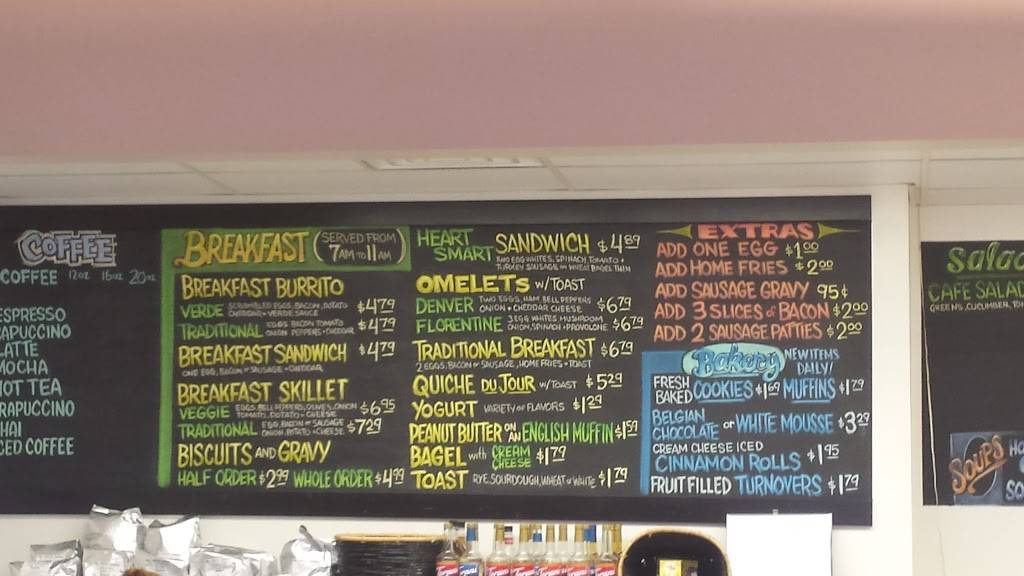 COFFEE
COFFEE 12oz 16oz 20oz
ESPRESSO
LATTE
MOCHA
HOT TEA
ICED COFFEE
BREAKFAST (SERVED FROM 7AM TO 11AM)
BREAKFAST BURRITO
VERDE SCRAMBLED EGGS, BACON, POTATO $4.79
TRADITIONAL EGGS, BACON, TOMATO ONION, PEPPERS + CHEDDAR $4.79
BREAKFAST SANDWICH $4.79
ONE EGG, BACON or SAUSAGE + CHEDDAR
BREAKFAST SKILLET
VEGGIE EGGS, BELL PEPPERS, OLIVES, ONION TOMATO, POTATO + CHEESE $6.95
TRADITIONAL EGG, BACON or SAUSAGE ONION, POTATO + CHEESE $7.29
BISCUITS AND GRAVY
HALF ORDER $2.99 WHOLE ORDER $4.99
HEART SMART SANDWICH $4.89
TWO EGG WHITES, SPINACH, TOMATO +
TURKEY SAUSAGE on WHEAT BAGEL THIN
OMELETS W/TOAST
DENVER TWO EGGS, HAM, BELL PEPPERS ONION + CHEDDAR CHEESE $6.79
FLORENTINE 3 EGG WHITES, MUSHROOM ONION, SPINACH + PROVOLONE $6.79
TRADITIONAL BREAKFAST $6.79
2 EGGS, BACON or SAUSAGE, HOME FRIES + TOAST
QUICHE DU JOUR W/TOAST $5.29
YOGURT VARIETY OF FLAVORS $1.29
PEANUT BUTTER ON AN ENGLISH MUFFIN $1.59
BAGEL with CREAM CHEESE $1.79
TOAST RYE, SOURDOUGH, WHEAT or WHITE $1.79
EXTRAS
ADD ONE EGG $1.00
ADD HOME FRIES $2.00
ADD SAUSAGE GRAVY 95¢
ADD 3 SLICES of BACON $2.00
ADD 2 SAUSAGE PATTIES $2.00
Bakery NEW ITEMS DAILY!
FRESH BAKED COOKIES $1.69 MUFFINS $1.79
BELGIAN CHOCOLATE or WHITE MOUSSE $3.29
CREAM CHEESE ICED
CINNAMON ROLLS $1.95
FRUIT FILLED TURNOVERS $1.79
CAFE SALAD
GREENS, CUCUMBER,
SOUPS